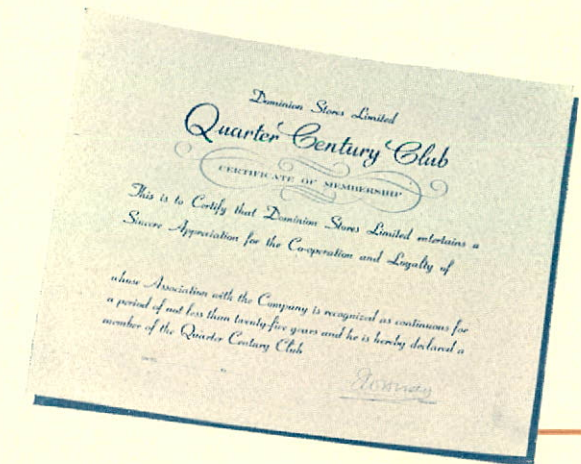 Dominion Stores Limited
Quarter Century Club
CERTIFICATE OF MEMBERSHIP
This is to Certify that Dominion Stores Limited entertains a
Sincere Appreciation for the Co-operation and Loyalty of
whose Association with the Company is recognized as continuous for
a period of not less than twenty-five years and he is hereby declared a
member of the Quarter Century Club